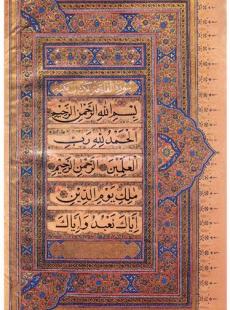 بِسْمِ اللهِ الرَّحْمٰنِ الرَّحِيمِ
الْحَمْدُ لِلّٰهِ رَبِّ
الْعٰلَمِينَ الرَّحْمٰنِ الرَّحِيمِ
مٰلِكِ يَوْمِ الدِّينِ
إِيَّاكَ نَعْبُدُ وَإِيَّاكَ